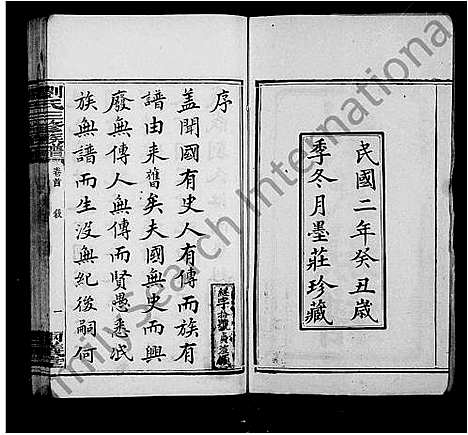 民國二年癸丑歲
季冬月墨莊珍藏
序
蓋聞國有史人有傳而族有
譜由来舊矣夫國無史而興
廢無傳人無傳而賢愚悉泯
族無譜而生沒無紀後嗣何
劉氏三修族譜
卷首
敘
一
FamilySearch International